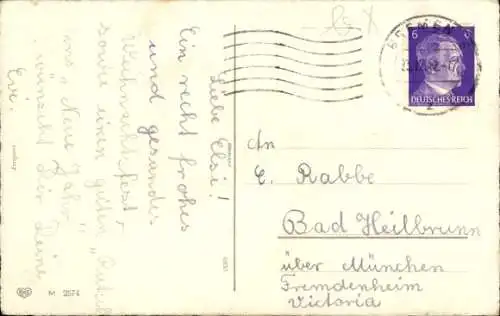 Liebe Elsi!
Ein recht frohes
und gesundes
Weihnachtsfest,
sowie einen guten „Rutsch
ins „Neue Jahr"
wünscht Dir Deine
Evi.
BREMEN
6 6
DEUTSCHES REICH
An
E. Rabbe
Bad Heilbrunn
über München
Fremdenheim
Victoria
M 2574